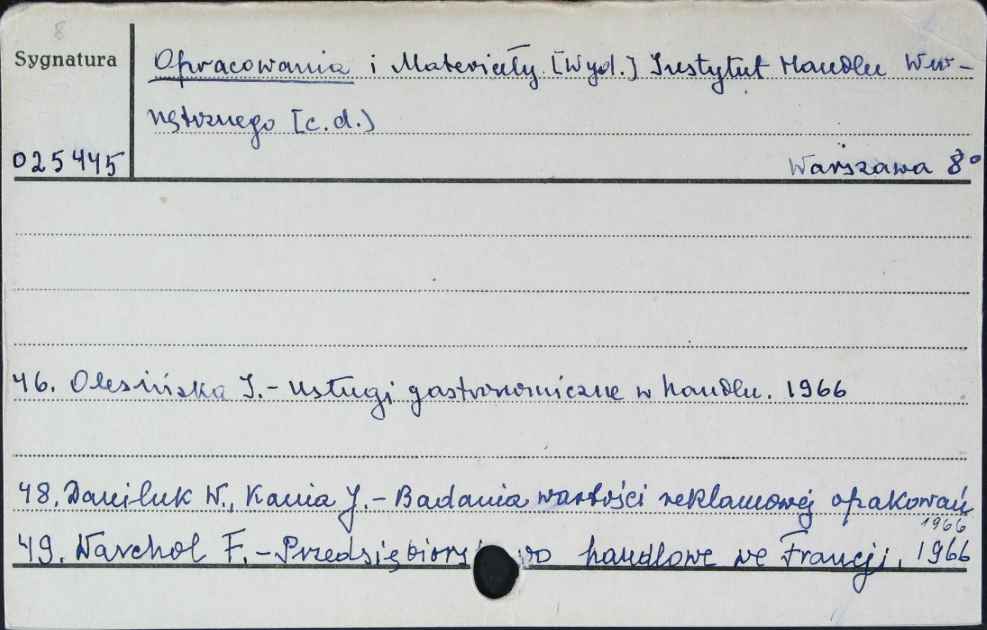 8
Sygnatura
Opracowania i Materiały [Wyd.] Instytut Handlu Wew-
nętrznego [c.d.]
025445
Warszawa 8°
46. Olesińska I. - Usługi gastronomiczne w handlu. 1966
48. Daniluk W., Kania J. - Badania wartości reklamowej opakowań
1966
49. Warchoł F. - Przedsiębiorstwo handlowe we Francji. 1966